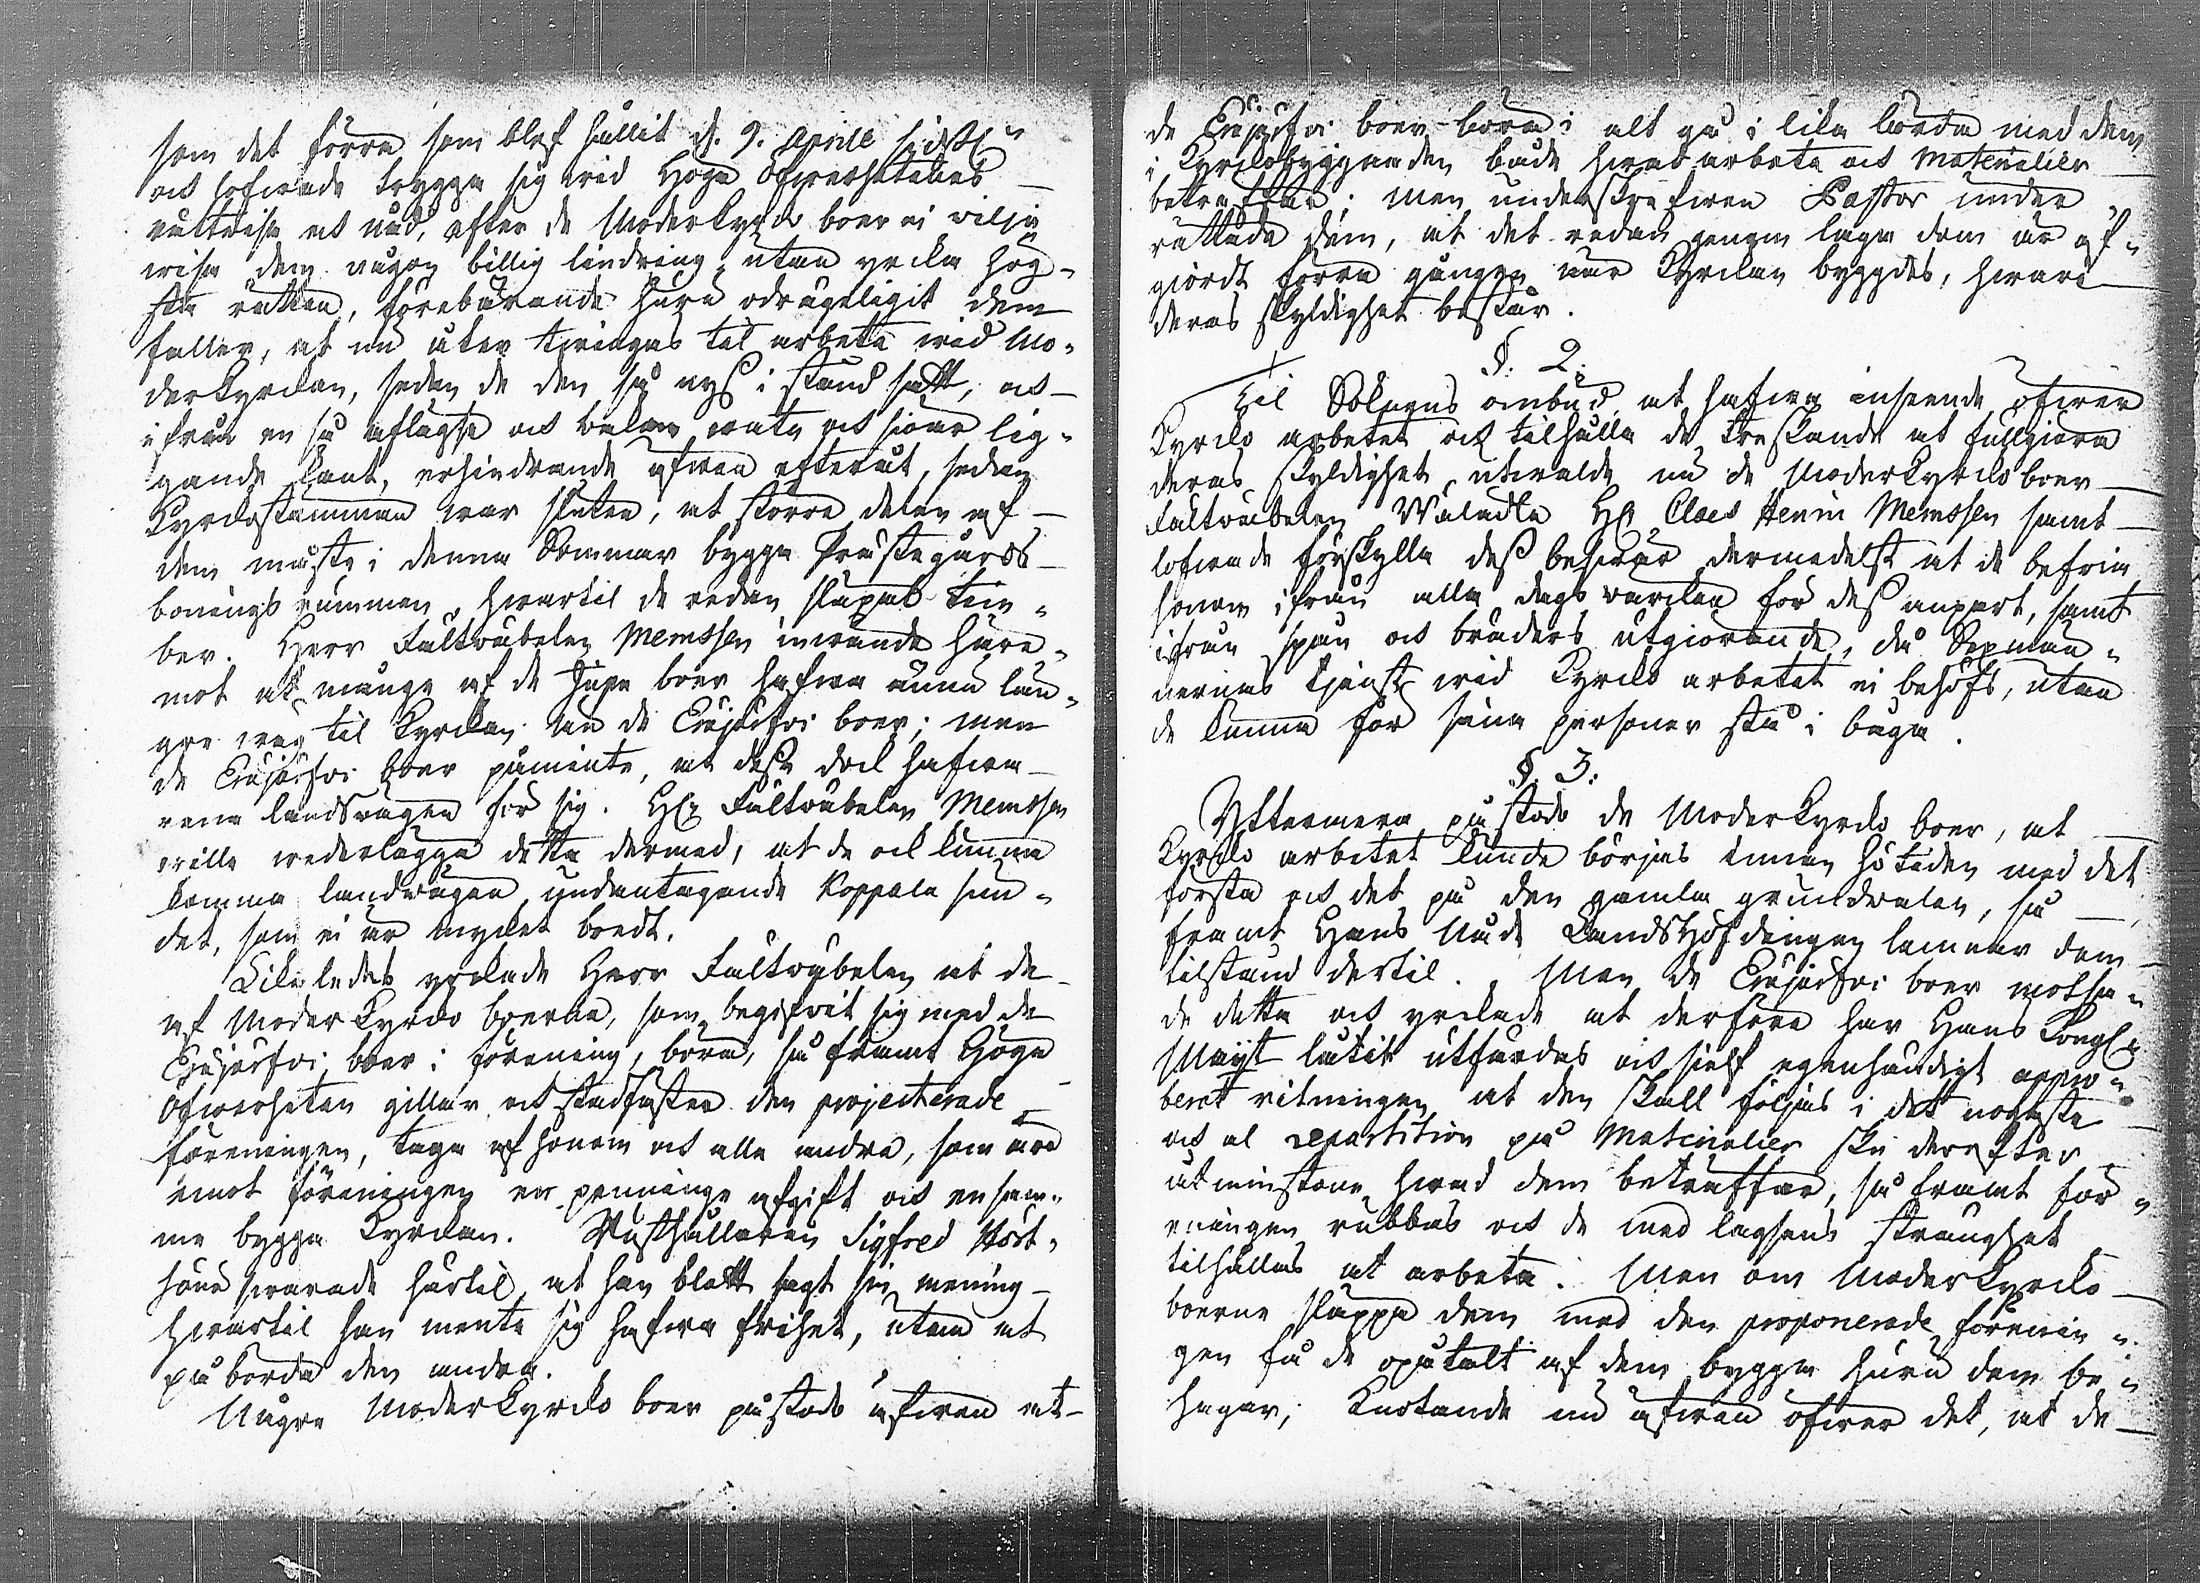 som det förra som blef hållit d. 9. Aprill sidstl.
och lofwade trygga sig wid Höga Öfwerhetenes
rättwisa och nåd, efter de Moderkyrcko boer ei wilja
wisa dem någon billig lindring, utan yrcka hög-
sta rätten, förebärande huru odrägeligit dem
faller, at nu åter twingas til arbete wid Mo-
derkyrckan, sedan de den sin nyss i stånd satt, och
ifrån en så aflägse och bakom watn och siöar lig-
gande kant, erhindrande äfwen efteråt, sedan
Kyrckostämman war sluten, at större delen af
dem måste i denna Sommar bygga Prästegårds
bonings rummen, hwartil de redan släpat tim-
ber. Herr Fältwäbelen Memssen inwände häre-
mot at många af de Tupu boer hafwa ännu län-
gre wäg til Kyrckan än de Enjärfvi boer; men
de Enjärfvi boer påminte, at desse dock hafwa
rena landswägen för sig. Hr Fältwäbelen Memssen
wille wederlägga detta dermed, at de ock kunna
komma landwägen undantagande Koppala sun-
det, som ei är mycket bredt.
Likaledes yrckade Herr Fältwäbelen at de
af Moderkyrcko boerne, som begifwit sig med de
Enjärfvi boer i förening, böra, så framt Höga
Öfwerheten gillar och stadfäster den projecterade
föreningen, taga af honom och alla andra, som äro
emot föreningen en penninge afgift och ensam-
me bygga Kyrckan. Rusthållaren Sigfred Röst-
hane swarade härtil, at han blott sagt sin mening
hwartil han mente sig hafwa frihet, utan at
på börda den andra.
Någre Moderkyrcko boer påstodo äfwen at
de Enjärfvi boer böra i alt gå i lika börda med dem
i Kyrckobyggnaden både hwad arbete och Materialier
beträffar; men underskrefwen Pastor under
rättade dem, at det redan genom laga dom är af-
giordt förra gången när Kyrckan byggdes, hwari
deras skyldighet består.
§. 2.
Til Sokenens ombud, at hafwa inseende öfwer
Kyrcko arbetet och tilhålla de treskande at fullgiöra
deras skyldighet, utwalde nu de Moderkyrcko boer
Fältwäbelen Wälädla Hr Claes Henric Memssen samt
lofwade förskylla dess beswär dermedelst at de befria
honom ifrån alla dags wärcken för dess anpart, samt
ifrån spån och bräders utgiörande, då Sexmän-
nernas tjenst wid Kyrcko arbetet ei behöfs, utan
de kunna för sina personer stå i båga.
§. 3.
Yttermera påstodo de Moderkyrcko boer, at
Kyrcko arbetet kunde börjas innan hötiden med det
första och det på den gamla grundwalen, så
framt Hans Nåde LandsHöfdingen lemnar dem
tilstånd dertil. Men de Enjärfvi boer motsa-
de detta och yrckade at derföre har Hans Kongl.
Mayt låtit utfärdas och sielf egenhändigt appro-
berat ritningen at den skall följas i det nogaste
och al repartition på Materialier ske derefter
åtminstone hwad dem beträffar, så framt för-
eningen rubbas och de med lagsens stränghet
tilhållas at arbeta. Men om Moderkyrcko
boerne släppa dem med den proponerade förenin-
gen få de opåtalt af dem bygga huru dem be-
hagar; Knotande nu äfwen öfwer det, at de